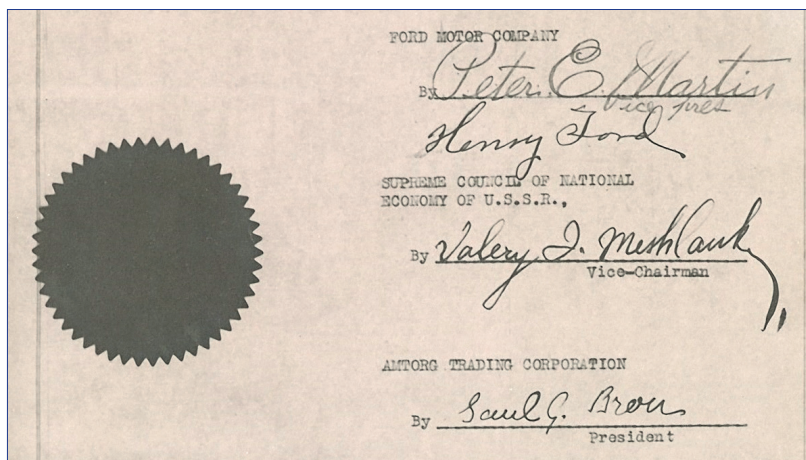 FORD MOTOR COMPANY
By Peter E. Martin
Vice Pres
Henry Ford
SUPREME COUNCIL OF NATIONAL
ECONOMY OF U.S.S.R.,
By Valery I. Meshlauk
Vice-Chairman
AMTORG TRADING CORPORATION
By Saul G. Bron
President